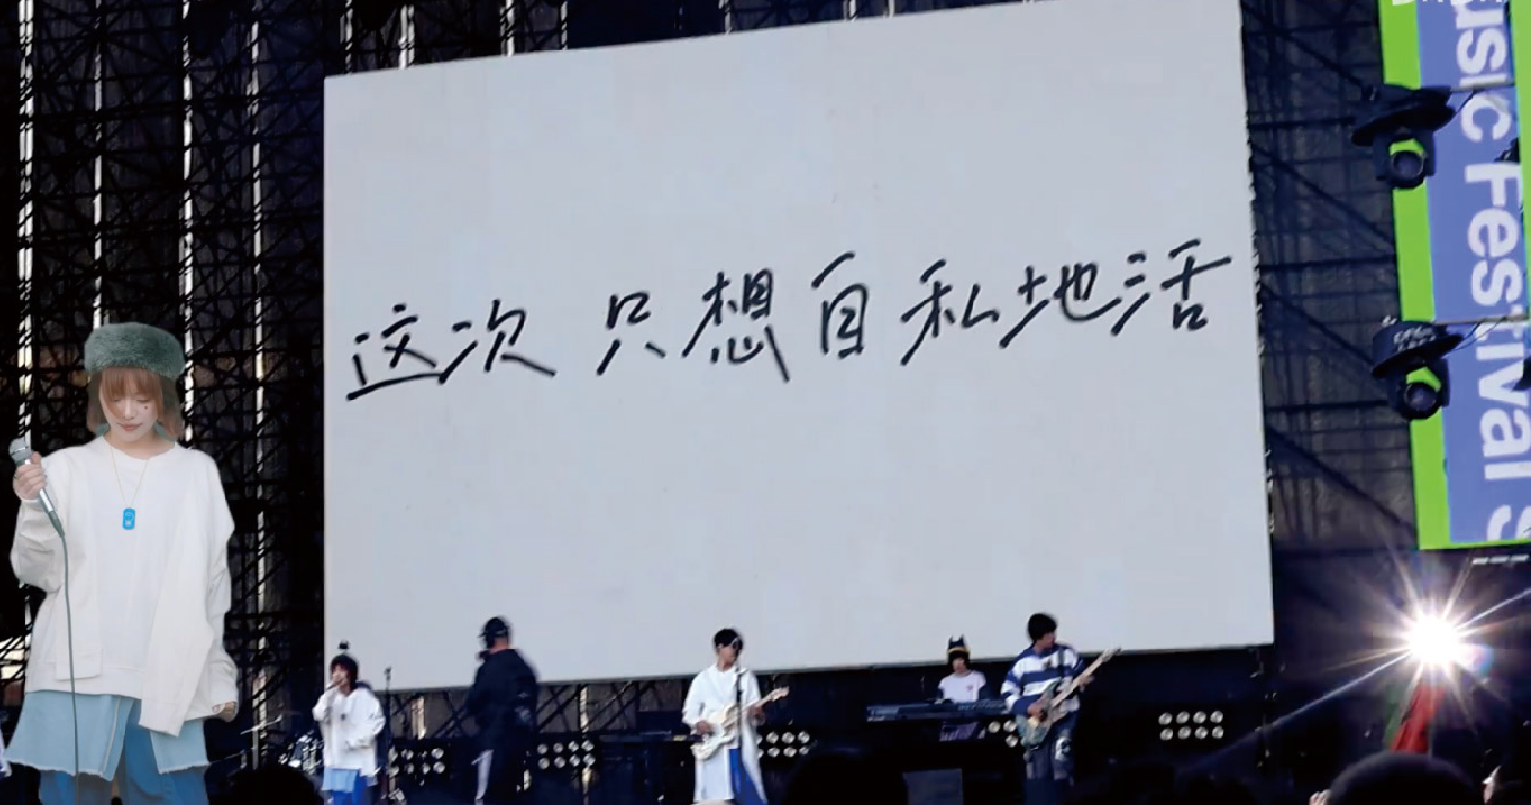 这次 只想自私地活
usic Festival S